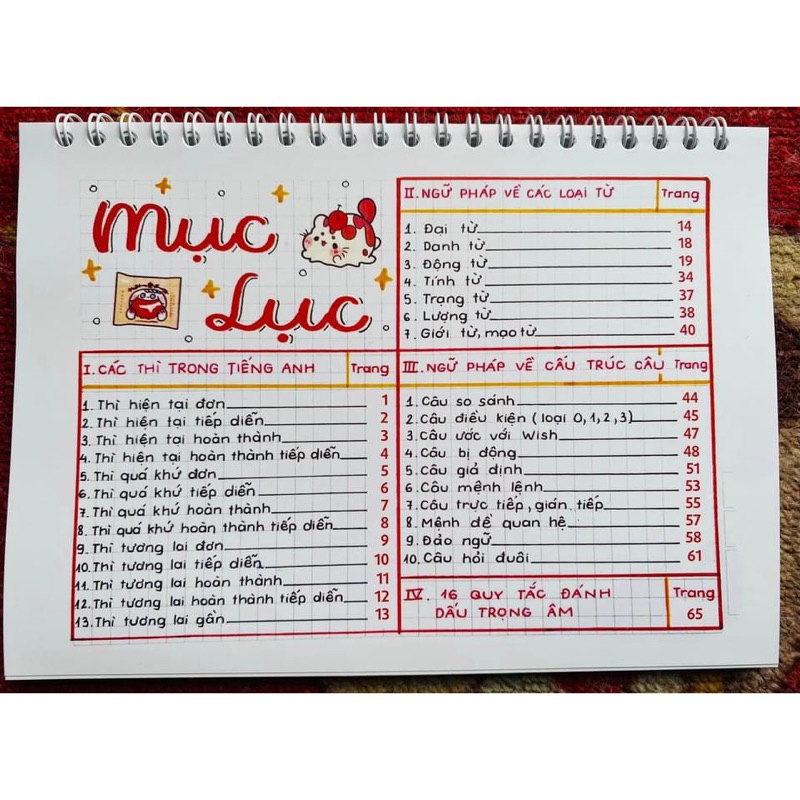 Mục
Lục
I. CÁC THÌ TRONG TIẾNG ANH Trang
1. Thì hiện tại đơn 1
2. Thì hiện tại tiếp diễn 2
3. Thì hiện tại hoàn thành 3
4. Thì hiện tại hoàn thành tiếp diễn 4
5. Thì quá khứ đơn 5
6. Thì quá khứ tiếp diễn 6
7. Thì quá khứ hoàn thành 7
8. Thì quá khứ hoàn thành tiếp diễn 8
9. Thì tương lai đơn 9
10. Thì tương lai tiếp diễn 10
11. Thì tương lai hoàn thành 11
12. Thì tương lai hoàn thành tiếp diễn 12
13. Thì tương lai gần 13
II. NGỮ PHÁP VỀ CÁC LOẠI TỪ Trang
1. Đại từ 14
2. Danh từ 18
3. Động từ 19
4. Tính từ 34
5. Trạng từ 37
6. Lượng từ 38
7. Giới từ, mạo từ 40
III. NGỮ PHÁP VỀ CẤU TRÚC CÂU Trang
1. Câu so sánh 44
2. Câu điều kiện (loại 0,1,2,3) 45
3. Câu ước với Wish 47
4. Câu bị động 48
5. Câu giả định 51
6. Câu mệnh lệnh 53
7. Câu trực tiếp, gián tiếp 55
8. Mệnh đề quan hệ 57
9. Đảo ngữ 58
10. Câu hỏi đuôi 61
IV. 16 QUY TẮC ĐÁNH Trang
DẤU TRỌNG ÂM 65